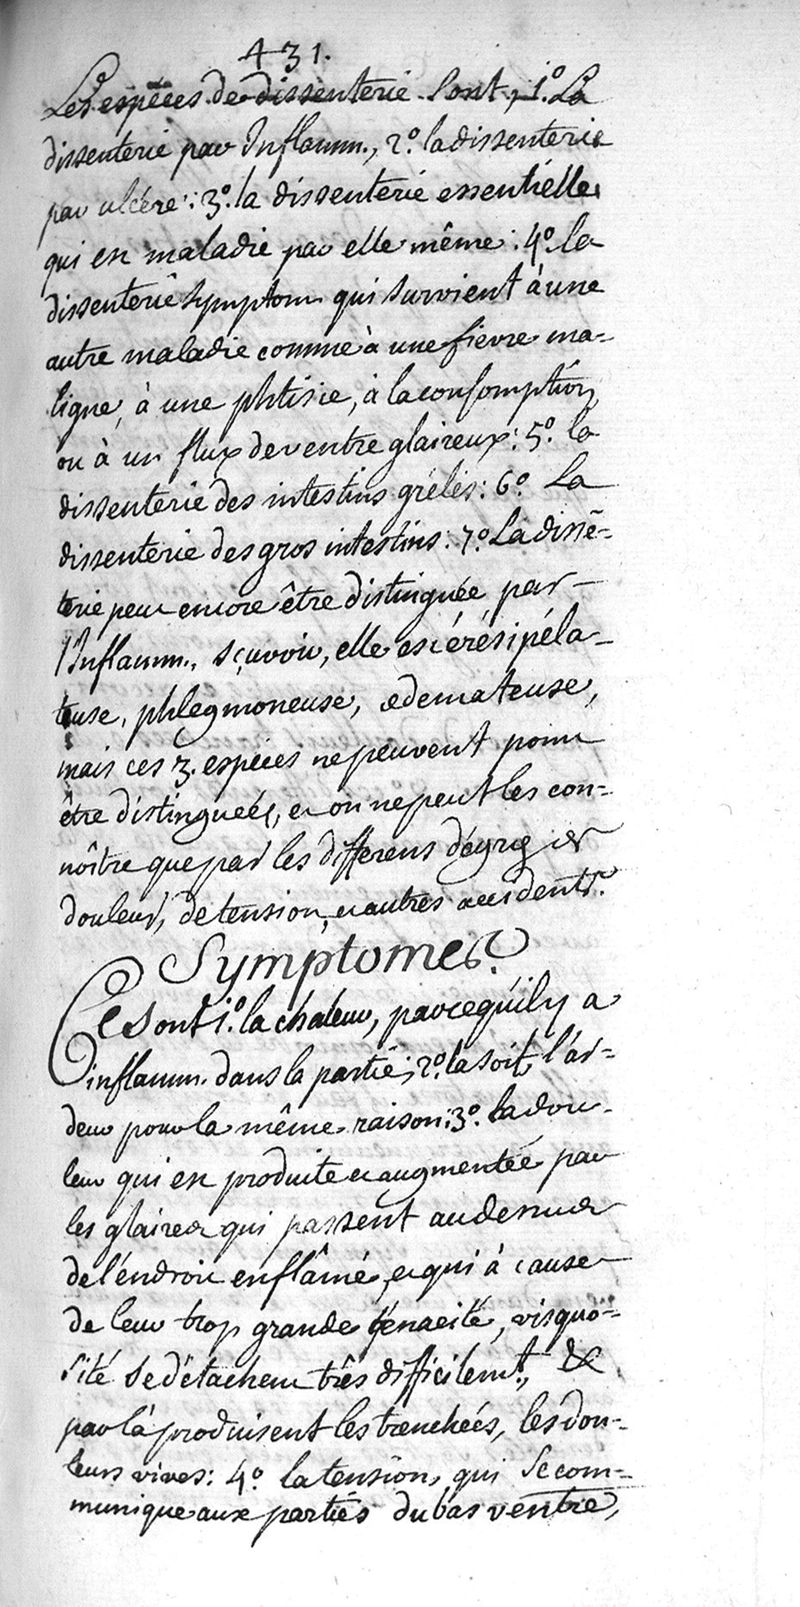 431.
Les espéces de dissenterie sont, 1.º La
dissenterie par Inflamm., 2.º la dissenterie
par ulcére: 3.º la dissenterie essentielle
qui est maladie par elle même: 4.º la
dissenterie Symptom qui survient à une
autre maladie comme à une fievre ma-
ligne, à une phtisie, à la consomption,
ou à un flux de ventre glaireux: 5.º la
dissenterie des intestins gréles: 6.º La
dissenterie des gros intestins: 7.º La dissê-
terie peut encore être distinguée par
l'Inflamm., sçavoir, elle est érésipéla-
teuse, phlegmoneuse, œdemateuse,
mais ces 3. espéces ne peuvent point
être distinguées, et on ne peut les con-
noître que par les differens dégrés de
douleur, de tension, et autres accidents.
Symptomes.
Ce sont 1.º la chaleur, parcequ'il y a
inflamm. dans la partie; 2.º la soif, l'ar-
deur pour la même raison: 3.º la dou-
leur qui est produite et augmentée par
les glaires qui passent au dessus
de l'endroit enflâmé, et qui à cause
de leur trop grande ténacité, visquo-
sité se détachent très difficilemt., &
par là produisent les trenchées, les dou-
leurs vives: 4.º la tension, qui se com-
munique aux parties du bas ventre,